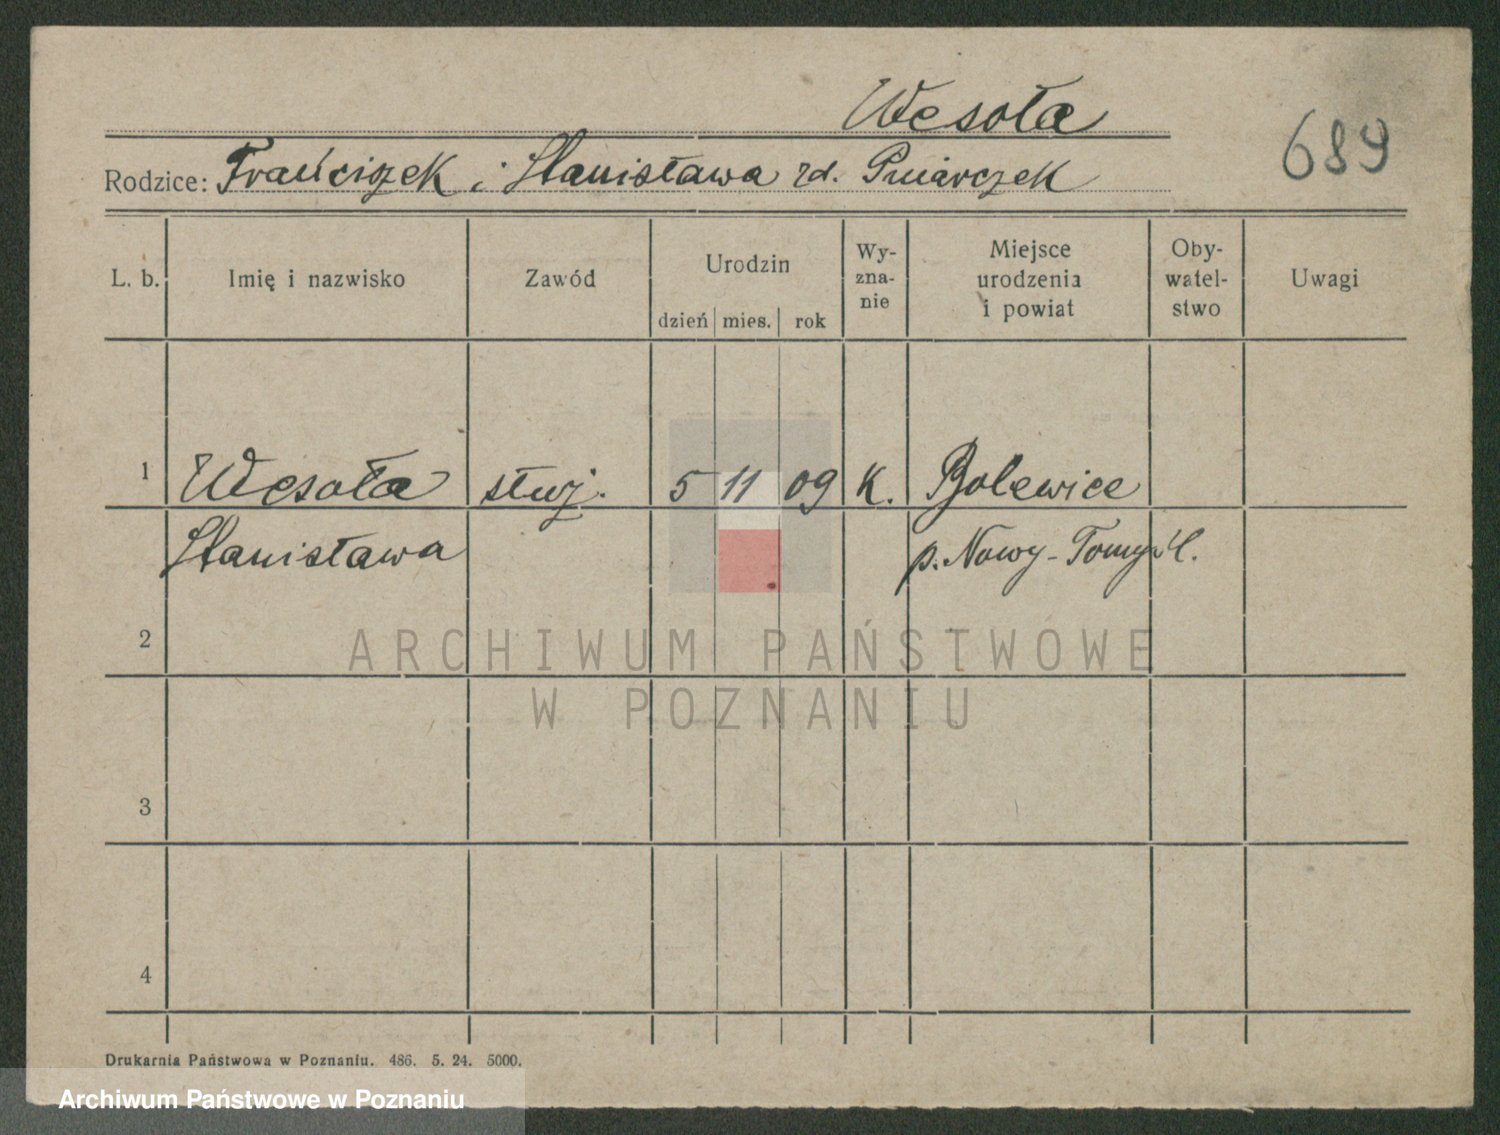 Wesoła
689
Rodzice: Franciszek i Stanisława rd. Pniarczek
L. b. Imię i nazwisko Zawód Urodzin Wy-zna-nie Miejsce urodzenia i powiat Oby-watel-stwo Uwagi
dzień mies. rok
1 Wesoła służ. 5 11 09 K. Bolewice
Stanisława p. Nowy-Tomyśl.
2
ARCHIWUM PAŃSTWOWE
W POZNANIU
3
4
Drukarnia Państwowa w Poznaniu. 486. 5. 24. 5000.
Archiwum Państwowe w Poznaniu